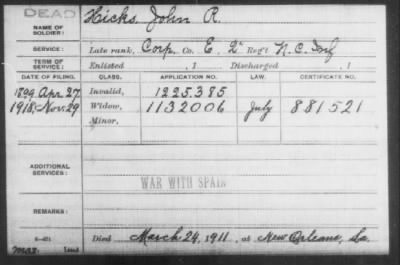 DEAD
NAME OF SOLDIER: Hicks, John R.
SERVICE: Late rank, Corp. Co. E, 2" Reg't N.C. Inf
TERM OF SERVICE: Enlisted , 1 Discharged , 1
DATE OF FILING. CLASS. APPLICATION NO. LAW. CERTIFICATE NO.
1899 Apr. 27 Invalid, 1225.385
1918, Nov. 29 Widow, 1132006 July 881521
Minor,
ADDITIONAL SERVICES:
WAR WITH SPAIN
REMARKS:
Died March 24, 1911, at New Orleans, La.